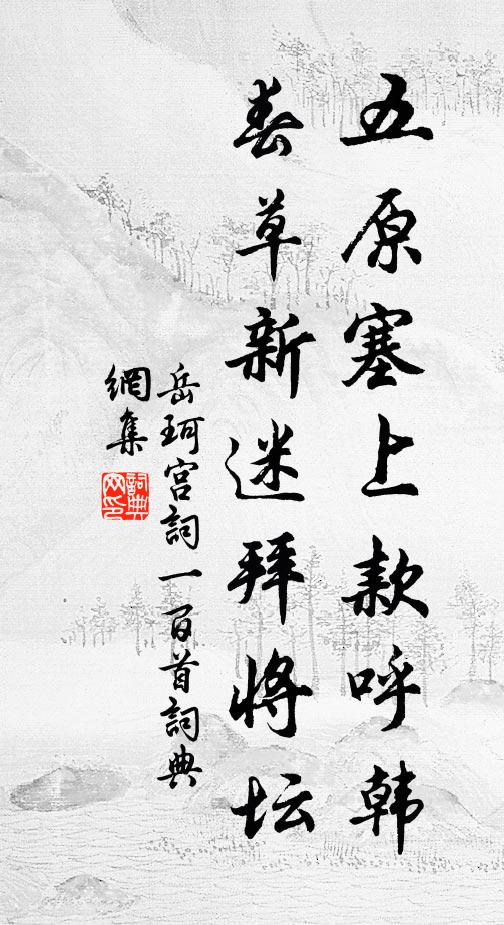 五原塞上款呼韩
春草新迷拜将坛
岳珂宫詞一百首詞典
網集
詞典
网印